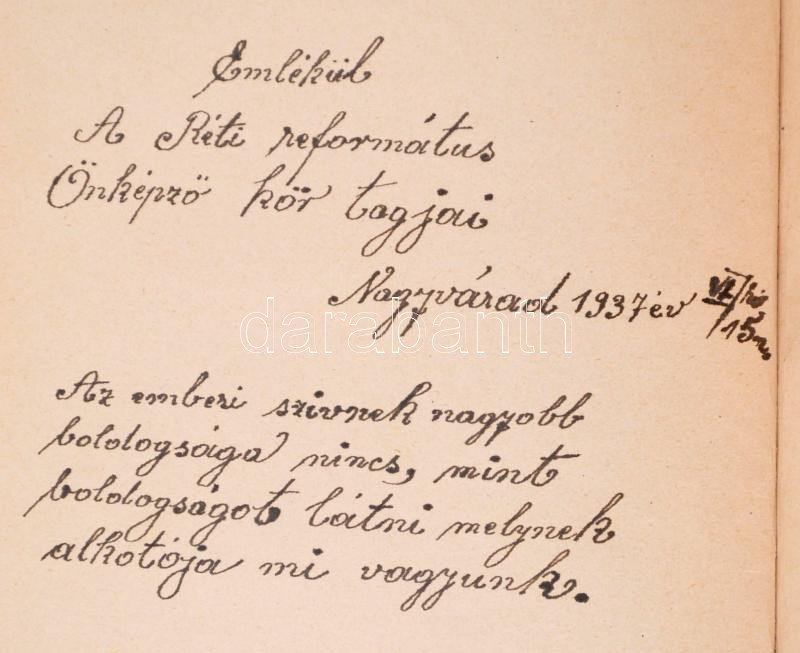 Emlékül
A Réti református
Önképző kör tagjai
Nagyvárad 1937 év VI/hó
15n.
darabanth
Az emberi szivnek nagyobb
boldogsága nincs, mint
boldogságot látni melynek
alkotója mi vagyunk.